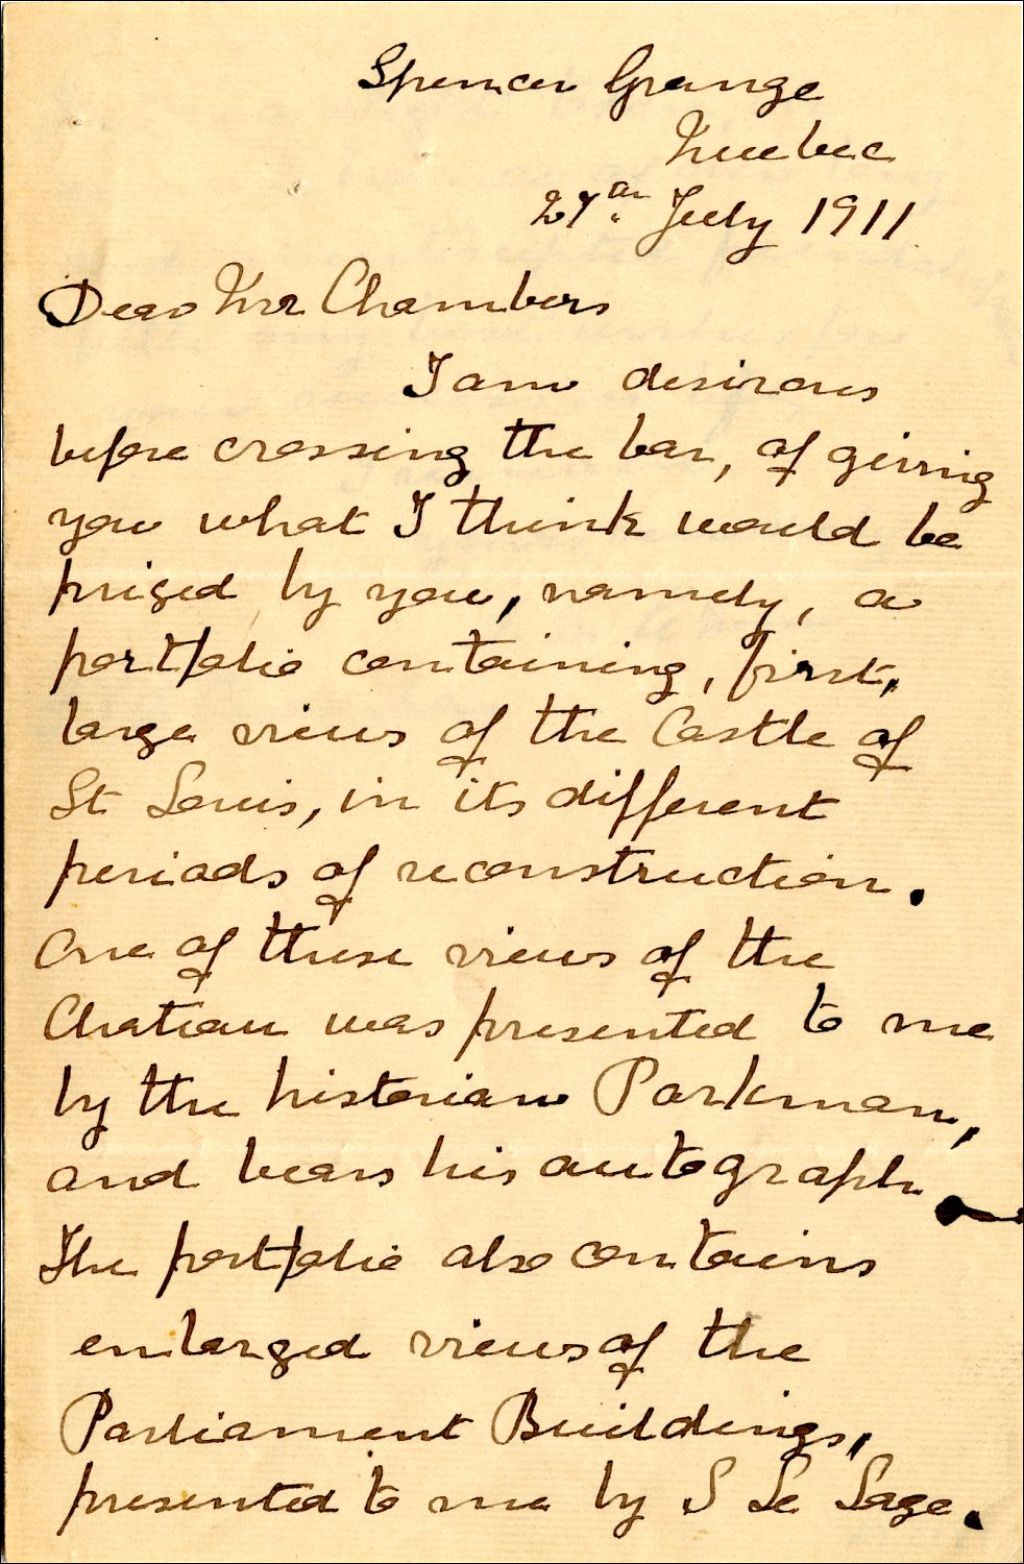 Spencer Grange
Quebec
27th July 1911
Dear Mr Chambers
I am desirous
before crossing the bar, of giving
you what I think would be
prized by you, namely, a
portfolio containing, first,
large views of the Castle of
St Louis, in its different
periods of reconstruction.
One of these views of the
Chateau was presented to me
by the historian Parkman,
and bears his autograph
The portfolio also contains
enlarged views of the
Parliament Buildings,
presented to me by S Le Sage.